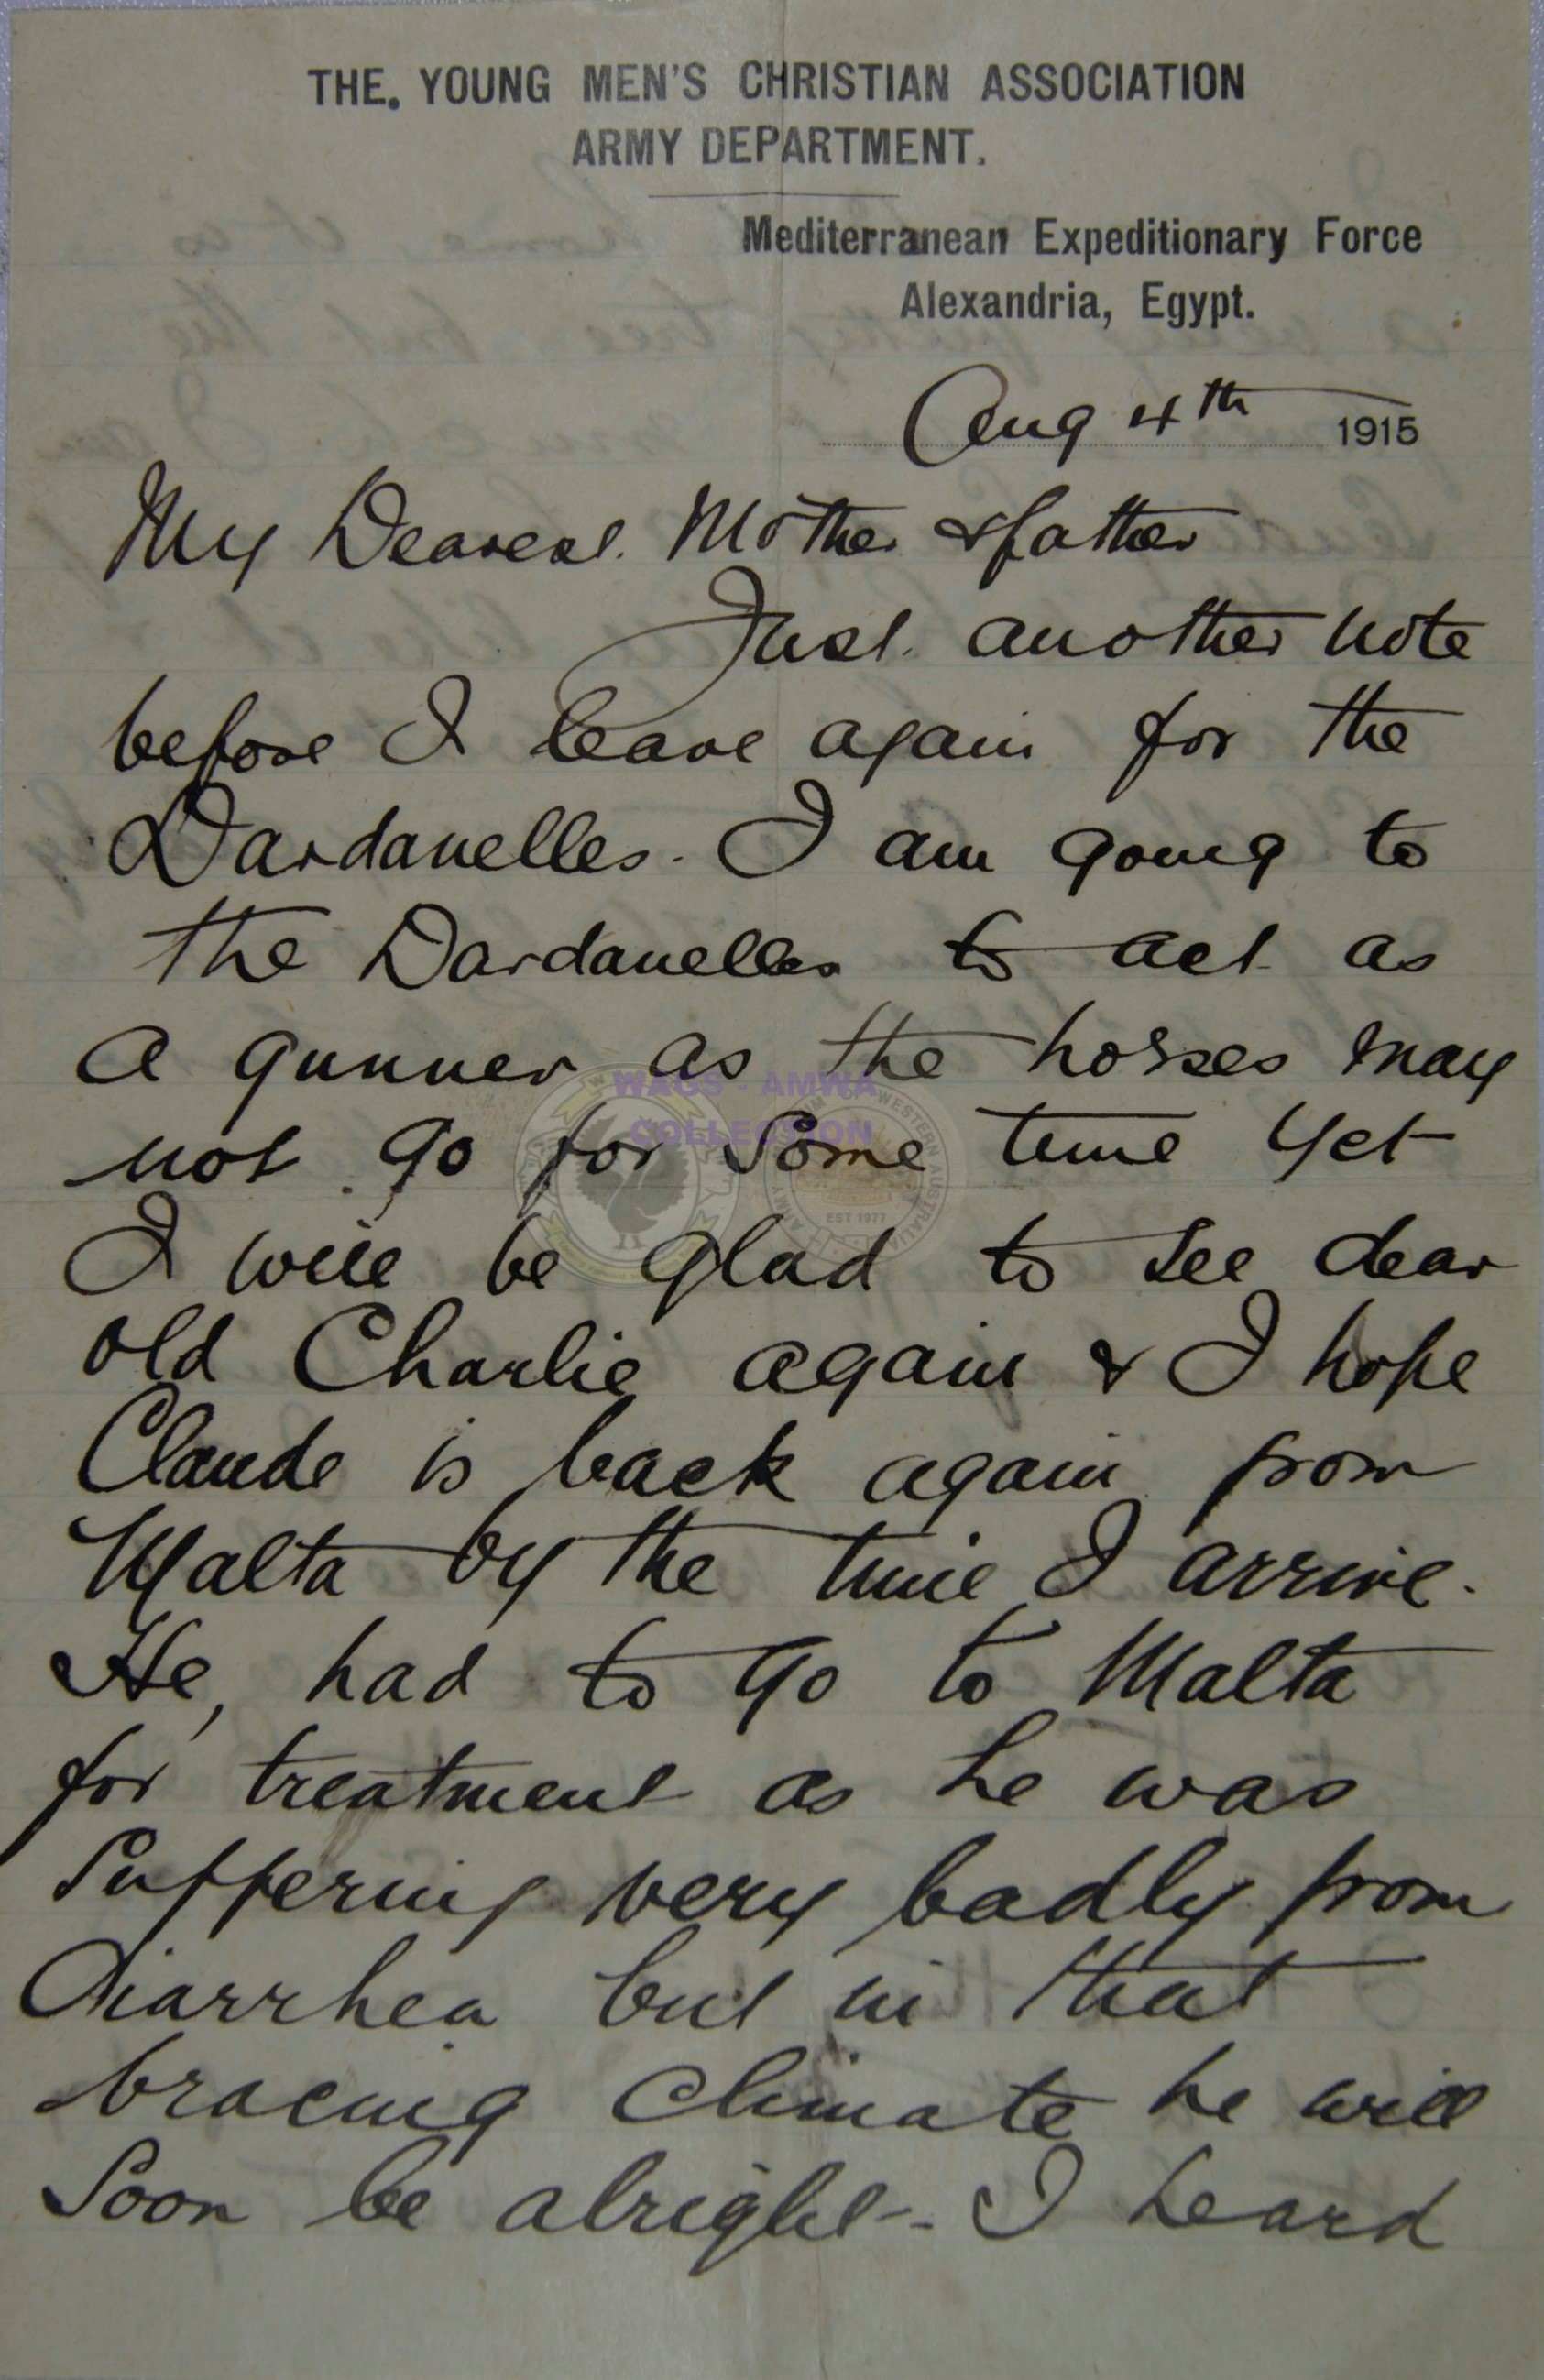 THE. YOUNG MEN'S CHRISTIAN ASSOCIATION
ARMY DEPARTMENT.
Mediterranean Expeditionary Force
Alexandria, Egypt.
Aug 4th 1915
My Dearest Mother & father
Just another note
before I leave again for the
Dardanelles. I am going to
the Dardanelles to act as
a gunner as the horses may
not go for some time yet
I will be glad to see dear
old Charlie again & I hope
Claude is back again from
Malta by the time I arrive.
He, had to go to Malta
for treatment as he was
suffering very badly from
Diarrhea but in that
bracing climate he will
soon be alright - I heard
WAGS - AMWA
COLLECTION
WESTERN AUSTRALIA
EST 1977